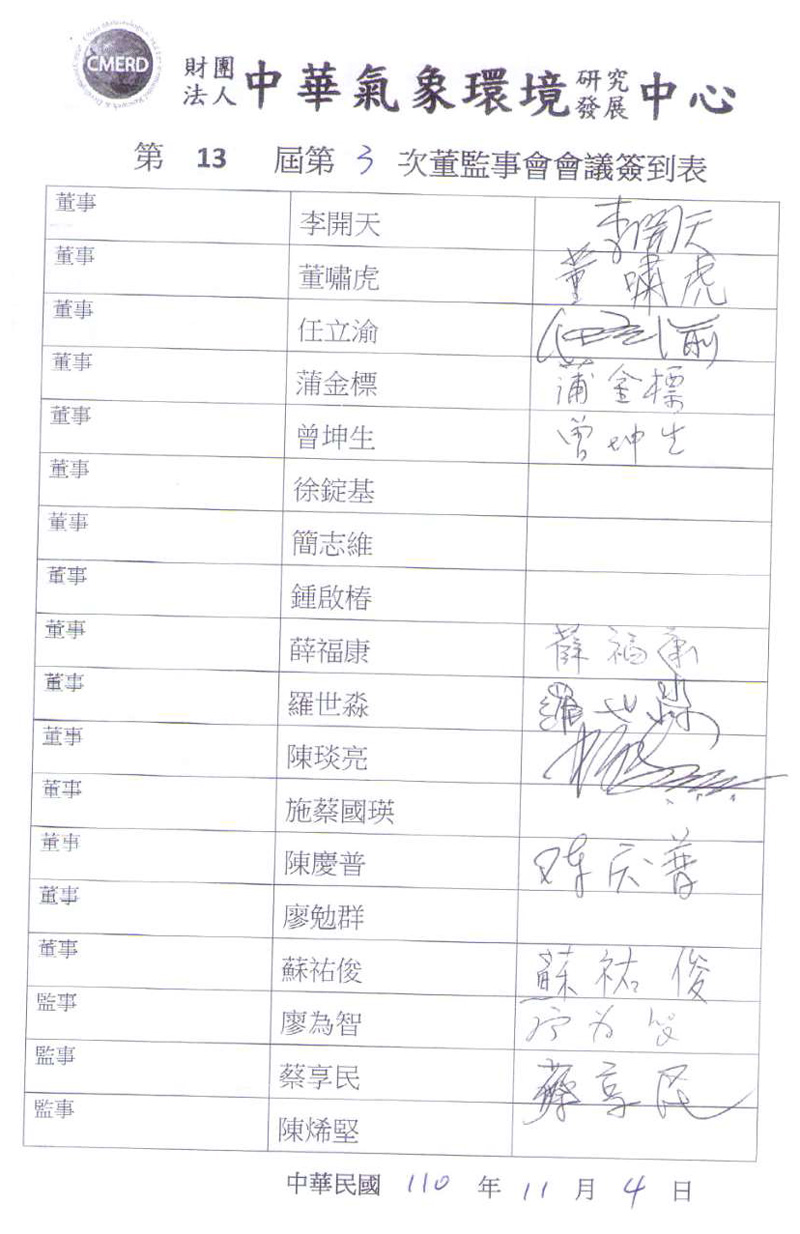 CMERD
財團法人中華氣象環境研究發展中心
第 13 屆第 3 次董監事會會議簽到表
董事 李開天 李開天
董事 董嘯虎 董嘯虎
董事 任立渝
董事 蒲金標 蒲金標
董事 曾坤生 曾坤生
董事 徐錠基
董事 簡志維
董事 鍾啟椿
董事 薛福康 薛福康
董事 羅世淼 羅世淼
董事 陳琰亮
董事 施蔡國瑛
董事 陳慶普 陳庆普
董事 廖勉群
董事 蘇祐俊 蘇祐俊
監事 廖為智
監事 蔡享民 蔡享民
監事 陳烯堅
中華民國 110 年 11 月 4 日